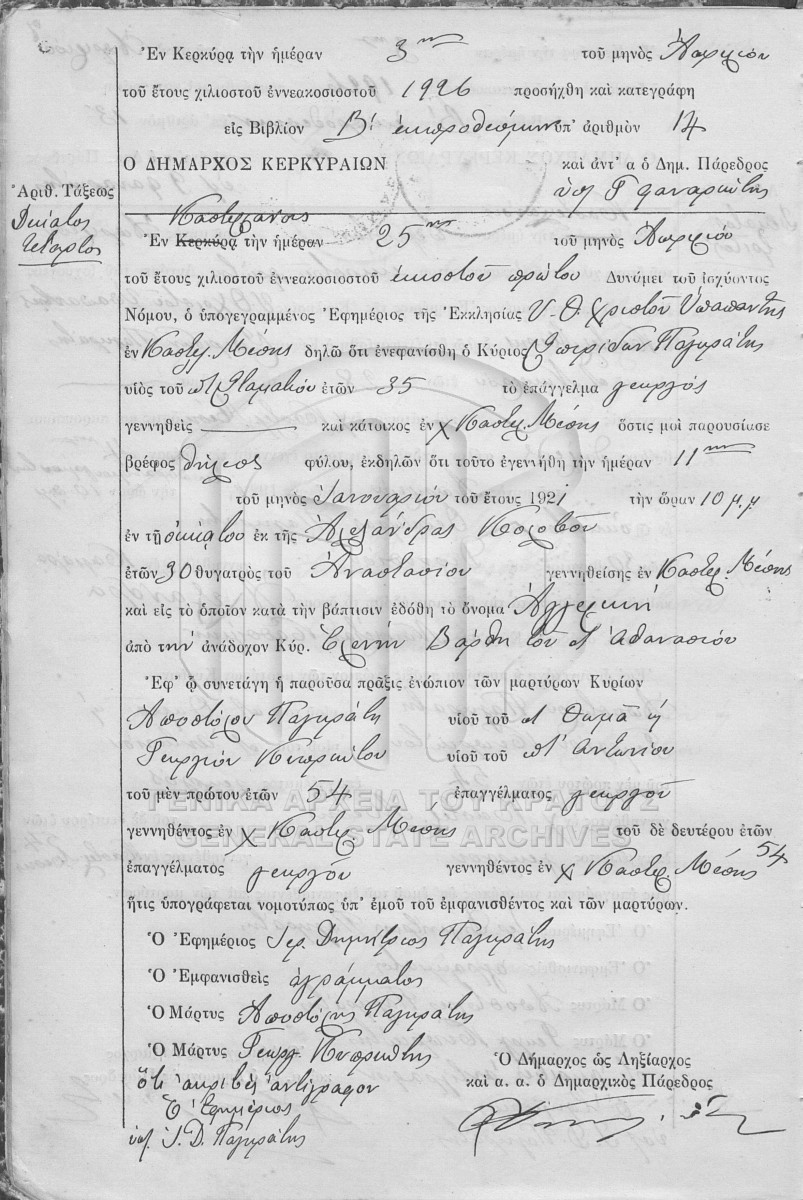 Ἐν Κερκύρᾳ τὴν ἡμέραν 3ην τοῦ μηνὸς Ἀπριλίου
τοῦ ἔτους χιλιοστοῦ ἐννεακοσιοστοῦ 1926 προσήχθη καὶ κατεγράφη
εἰς Βιβλίον Β! ἐκπροθέσμων ὑπ' ἀριθμὸν 14
Ο ΔΗΜΑΡΧΟΣ ΚΕΡΚΥΡΑΙΩΝ καὶ ἀντ' α ὁ Δημ. Πάρεδρος
Ἀριθ. Τάξεως
Δέκατος
τέταρτος
ὑπ. Γ Φαναριώτης
Καστελλάνοις
Ἐν Κερκύρᾳ τὴν ἡμέραν 25ην τοῦ μηνὸς Ἀπριλίου
τοῦ ἔτους χιλιοστοῦ ἐννεακοσιοστοῦ εἰκοστοῦ πρώτου Δυνάμει τοῦ ἰσχύοντος
Νόμου, ὁ ὑπογεγραμμένος Ἐφημέριος τῆς Ἐκκλησίας Υ-Θ. Χριστοῦ Ὑπαπαντῆς
ἐν Καστελ. Μέσης δηλῶ ὅτι ἐνεφανίσθη ὁ Κύριος Σπυρίδων Παγκράτης
υἱὸς τοῦ π. Σταματίου ἐτῶν 35 τὸ ἐπάγγελμα γεωργός
γεννηθεὶς καὶ κάτοικος ἐν χ Καστελ. Μέσης ὅστις μοὶ παρουσίασε
βρέφος θήλεος φύλου, ἐκδηλῶν ὅτι τοῦτο ἐγεννήθη τὴν ἡμέραν 11ην
τοῦ μηνὸς Ἰανουαρίου τοῦ ἔτους 1921 τὴν ὥραν 10 μ.μ
ἐν τῇ οἰκίᾳ του ἐκ τῆς Ἀλεξάνδρας Κολοβοῦ
ἐτῶν 30 θυγατρὸς τοῦ Ἀναστασίου γεννηθείσης ἐν Καστελ. Μέσης
καὶ εἰς τὸ ὁποῖον κατὰ τὴν βάπτισιν ἐδόθη τὸ ὄνομα Ἀγγελική
ἀπὸ τὴν ἀνάδοχον Κύρ. Ἑλένην Βάρθη τοῦ π Ἀθανασίου
Ἐφ' ᾧ συνετάγη ἡ παροῦσα πρᾶξις ἐνώπιον τῶν μαρτύρων Κυρίων
Ἀποστόλου Παγκράτη υἱοῦ τοῦ π Θωμᾶ ἢ
Γεωργίου Κυπριώτου υἱοῦ τοῦ π. Ἀντωνίου
τοῦ μὲν πρώτου ἐτῶν 54 ἐπαγγέλματος γεωργοῦ
ΓΕΝΙΚΑ ΑΡΧΕΙΑ ΤΟΥ ΚΡΑΤΟΥΣ
γεννηθέντος ἐν χ Καστελ. Μέσης τοῦ δὲ δευτέρου ἐτῶν 54
GENERAL STATE ARCHIVES
ἐπαγγέλματος γεωργοῦ γεννηθέντος ἐν χ Καστελ. Μέσης
ἥτις ὑπογράφεται νομοτύπως ὑπ' ἐμοῦ τοῦ ἐμφανισθέντος καὶ τῶν μαρτύρων.
Ὁ Ἐφημέριος Ἱερ. Δημήτριος Παγκράτης
Ὁ Ἐμφανισθεὶς ἀγράμματος
Ὁ Μάρτυς Ἀποστόλης Παγκράτης
Ὁ Μάρτυς Γεώργ. Κυπριώτης
Ὁ Δήμαρχος ὡς Ληξίαρχος
καὶ α. α. ὁ Δημαρχικὸς Πάρεδρος
ὅτι ἀκριβὲς ἀντίγραφον
Ὁ Ἐφημέριος
ὑπ. Ἱ. Δ. Παγκράτης